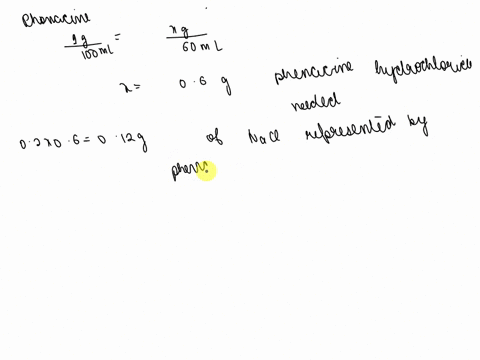 Phenacine
1g/100mL = xg/60mL
x = 0.6 g phenacine hydrochloride
needed
0.2x0.6 = 0.12g of NaCl represented by
phen